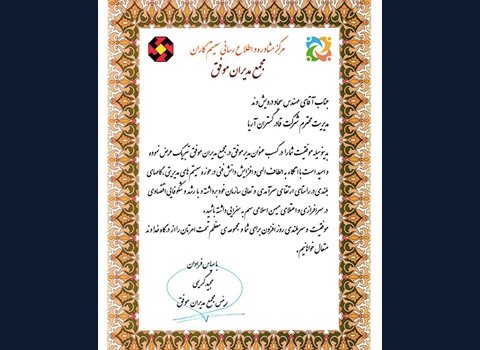 مرکز مشاوره و اطلاع رسانی سیستم کاران
مجمع مدیران موفق
جناب آقای مهندس سجاد درویش وند
مدیریت محترم شرکت فناد گستران آریا
بدینوسیله موفقیت شما را در کسب عنوان مدیر موفق در مجمع مدیران موفق تبریک عرض نموده
و امید است با اتکاء به الطاف الهی و افزایش دانش فنی در حوزه سیستم های مدیریتی، گامهای
بلندی در راستای ارتقای سرآمدی و تعالی سازمان خود برداشته و با رشد و شکوفایی اقتصادی
در سرافرازی و اعتلای میهن اسلامی سهم به سزایی داشته باشید.
موفقیت و سربلندی روزافزون برای شما و مجموعه ی معظم تحت امرتان را از درگاه خداوند
متعال خواهانیم.
با سپاس فراوان
مجید کریمی
رئیس مجمع مدیران موفق